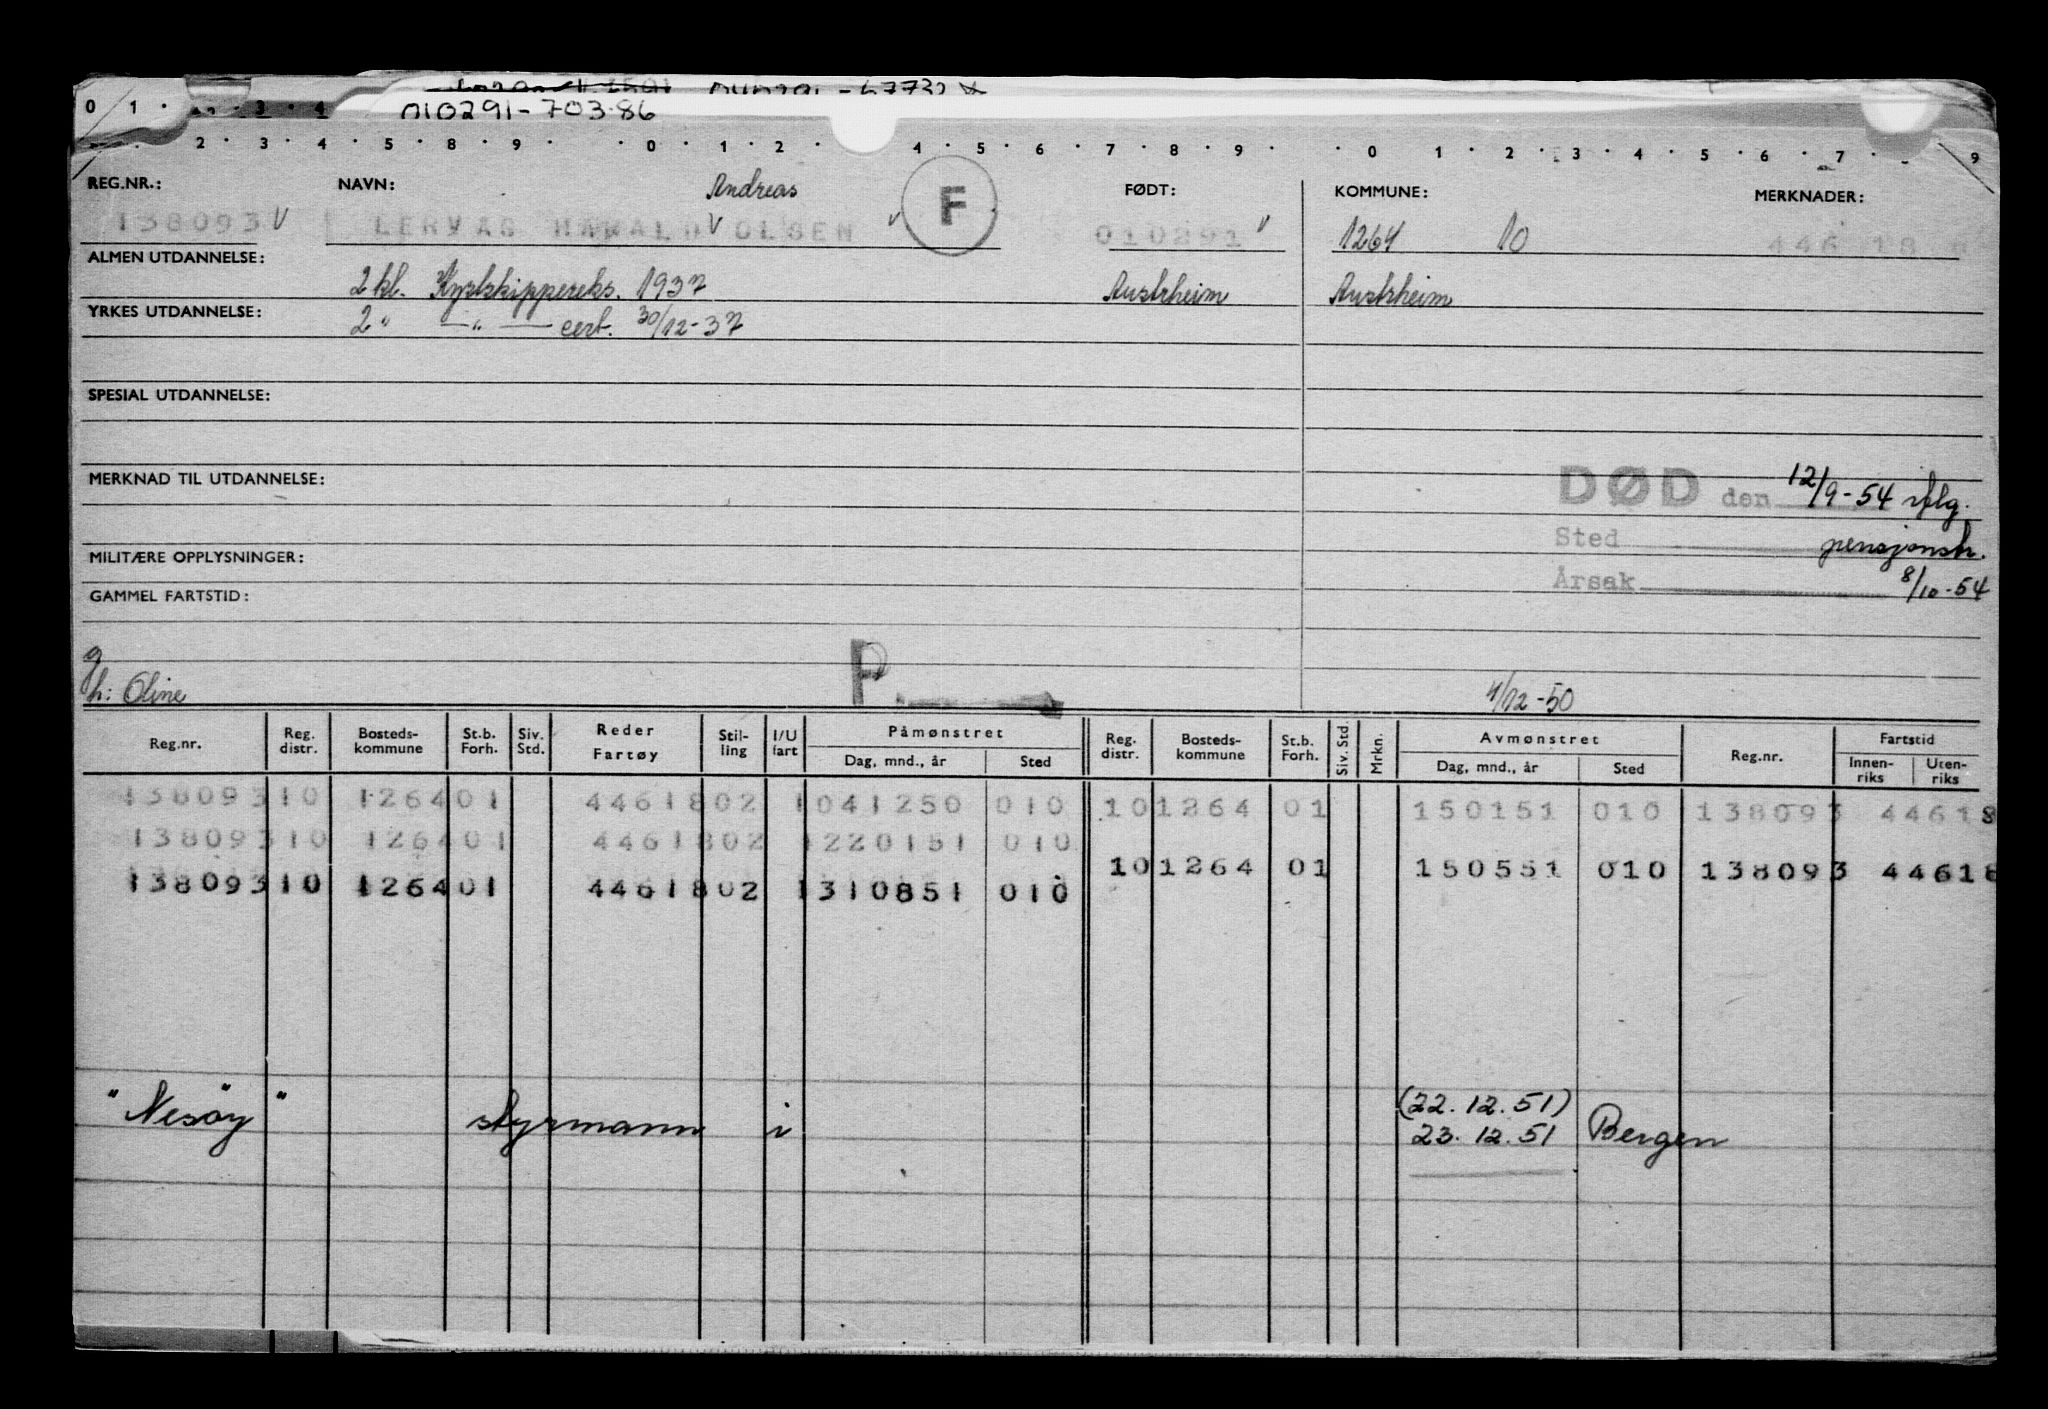 010291-703·86
0 1 · 3 4
2 · 3 · 4 · 5 · 8 · 9 · · 0 · 1 · 2 · 4 · 5 · 6 · 7 · 8 · 9 · · 0 · 1 · 2 · 3 · 4 · 5 · 6 · 7 · 9
REG.NR.: NAVN: Andreas F FØDT: KOMMUNE: MERKNADER:
138093 LERVAS HAWALD OLSEN 010291 1264 10 446 18
ALMEN UTDANNELSE:
2 kl. Kystskippereks. 1937 Austrheim Austrheim
YRKES UTDANNELSE:
2 " —"— cert. 30/12-37
SPESIAL UTDANNELSE:
MERKNAD TIL UTDANNELSE:
DØD den 12/9-54 iflg.
Sted pensjonstr.
MILITÆRE OPPLYSNINGER:
Årsak 8/10-54
GAMMEL FARTSTID:
g
h: Oline P. 4/12-50
Reg.nr. Reg. distr. Bosteds-kommune St.b. Forh. Siv. Std. Reder Fartøy Stil-ling I/U fart Påmønstret Dag, mnd., år Sted Reg. distr. Bosteds-kommune St.b. Forh. Siv. Std. Mrkn. Avmønstret Dag, mnd., år Sted Reg.nr. Fartstid Innen-riks Uten-riks
138093 10 1264 01 44618 02 1 041250 010 10 1264 01 150151 010 138093 44618
138093 10 1264 01 44618 02 1 220151 010
10 1264 01 150551 010 138093 44618
138093 10 1264 01 44618 02 1 310851 010
"Nesøy" styrmann i (22.12.51)
23.12.51 Bergen